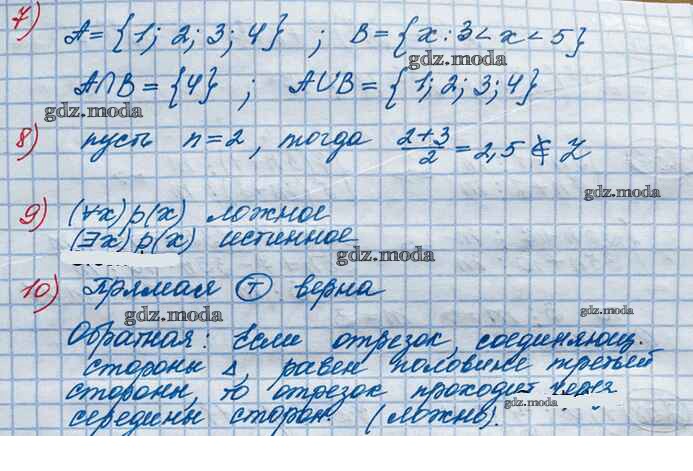 7) A = {1; 2; 3; 4} ; B = {x : 3 < x < 5}
gdz.moda
A∩B = {4} ; A∪B = {1; 2; 3; 4}
gdz.moda
8) пусть n = 2, тогда (2+3)/2 = 2,5 ∉ Z
gdz.moda
9) (∀x) p(x) ложное
(∃x) p(x) истинное
gdz.moda
10) Прямая Ⓣ верна
gdz.moda
gdz.moda
Обратная: Если отрезок, соединяющ.
стороны Δ, равен половине третьей
стороны, то отрезок проходит через
gdz.moda
середины сторон. (ложно).